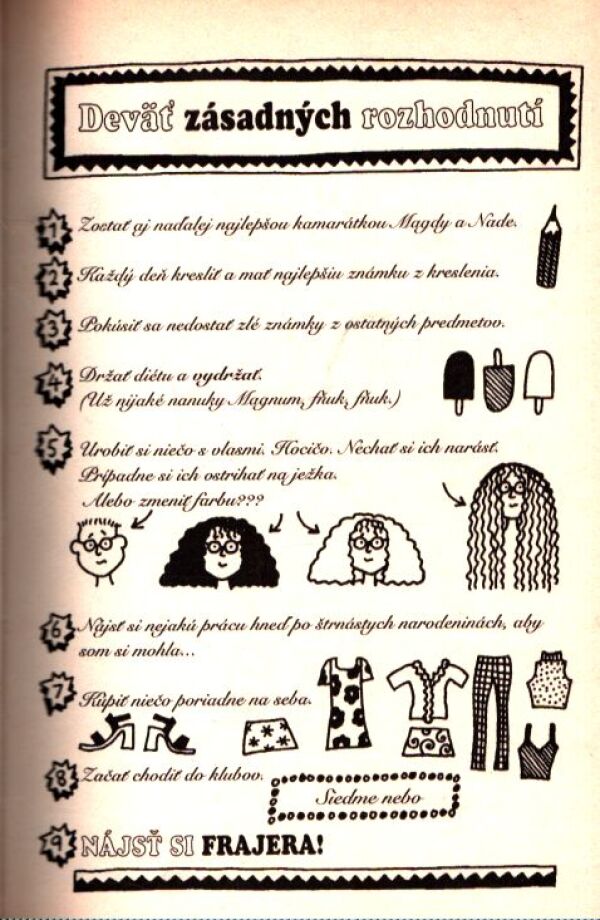 Deväť zásadných rozhodnutí
1 Zostať aj naďalej najlepšou kamarátkou Magdy a Nade.
2 Každý deň kresliť a mať najlepšiu známku z kreslenia.
3 Pokúsiť sa nedostať zlé známky z ostatných predmetov.
4 Držať diétu a vydržať.
(Už nijaké nanuky Magnum, fňuk, fňuk.)
5 Urobiť si niečo s vlasmi. Hocičo. Nechať si ich narásť.
Prípadne si ich ostrihať na ježka.
Alebo zmeniť farbu???
6 Nájsť si nejakú prácu hneď po štrnástych narodeninách, aby
som si mohla...
7 Kúpiť niečo poriadne na seba.
8 Začať chodiť do klubov.
Siedme nebo
9 NÁJSŤ SI FRAJERA!